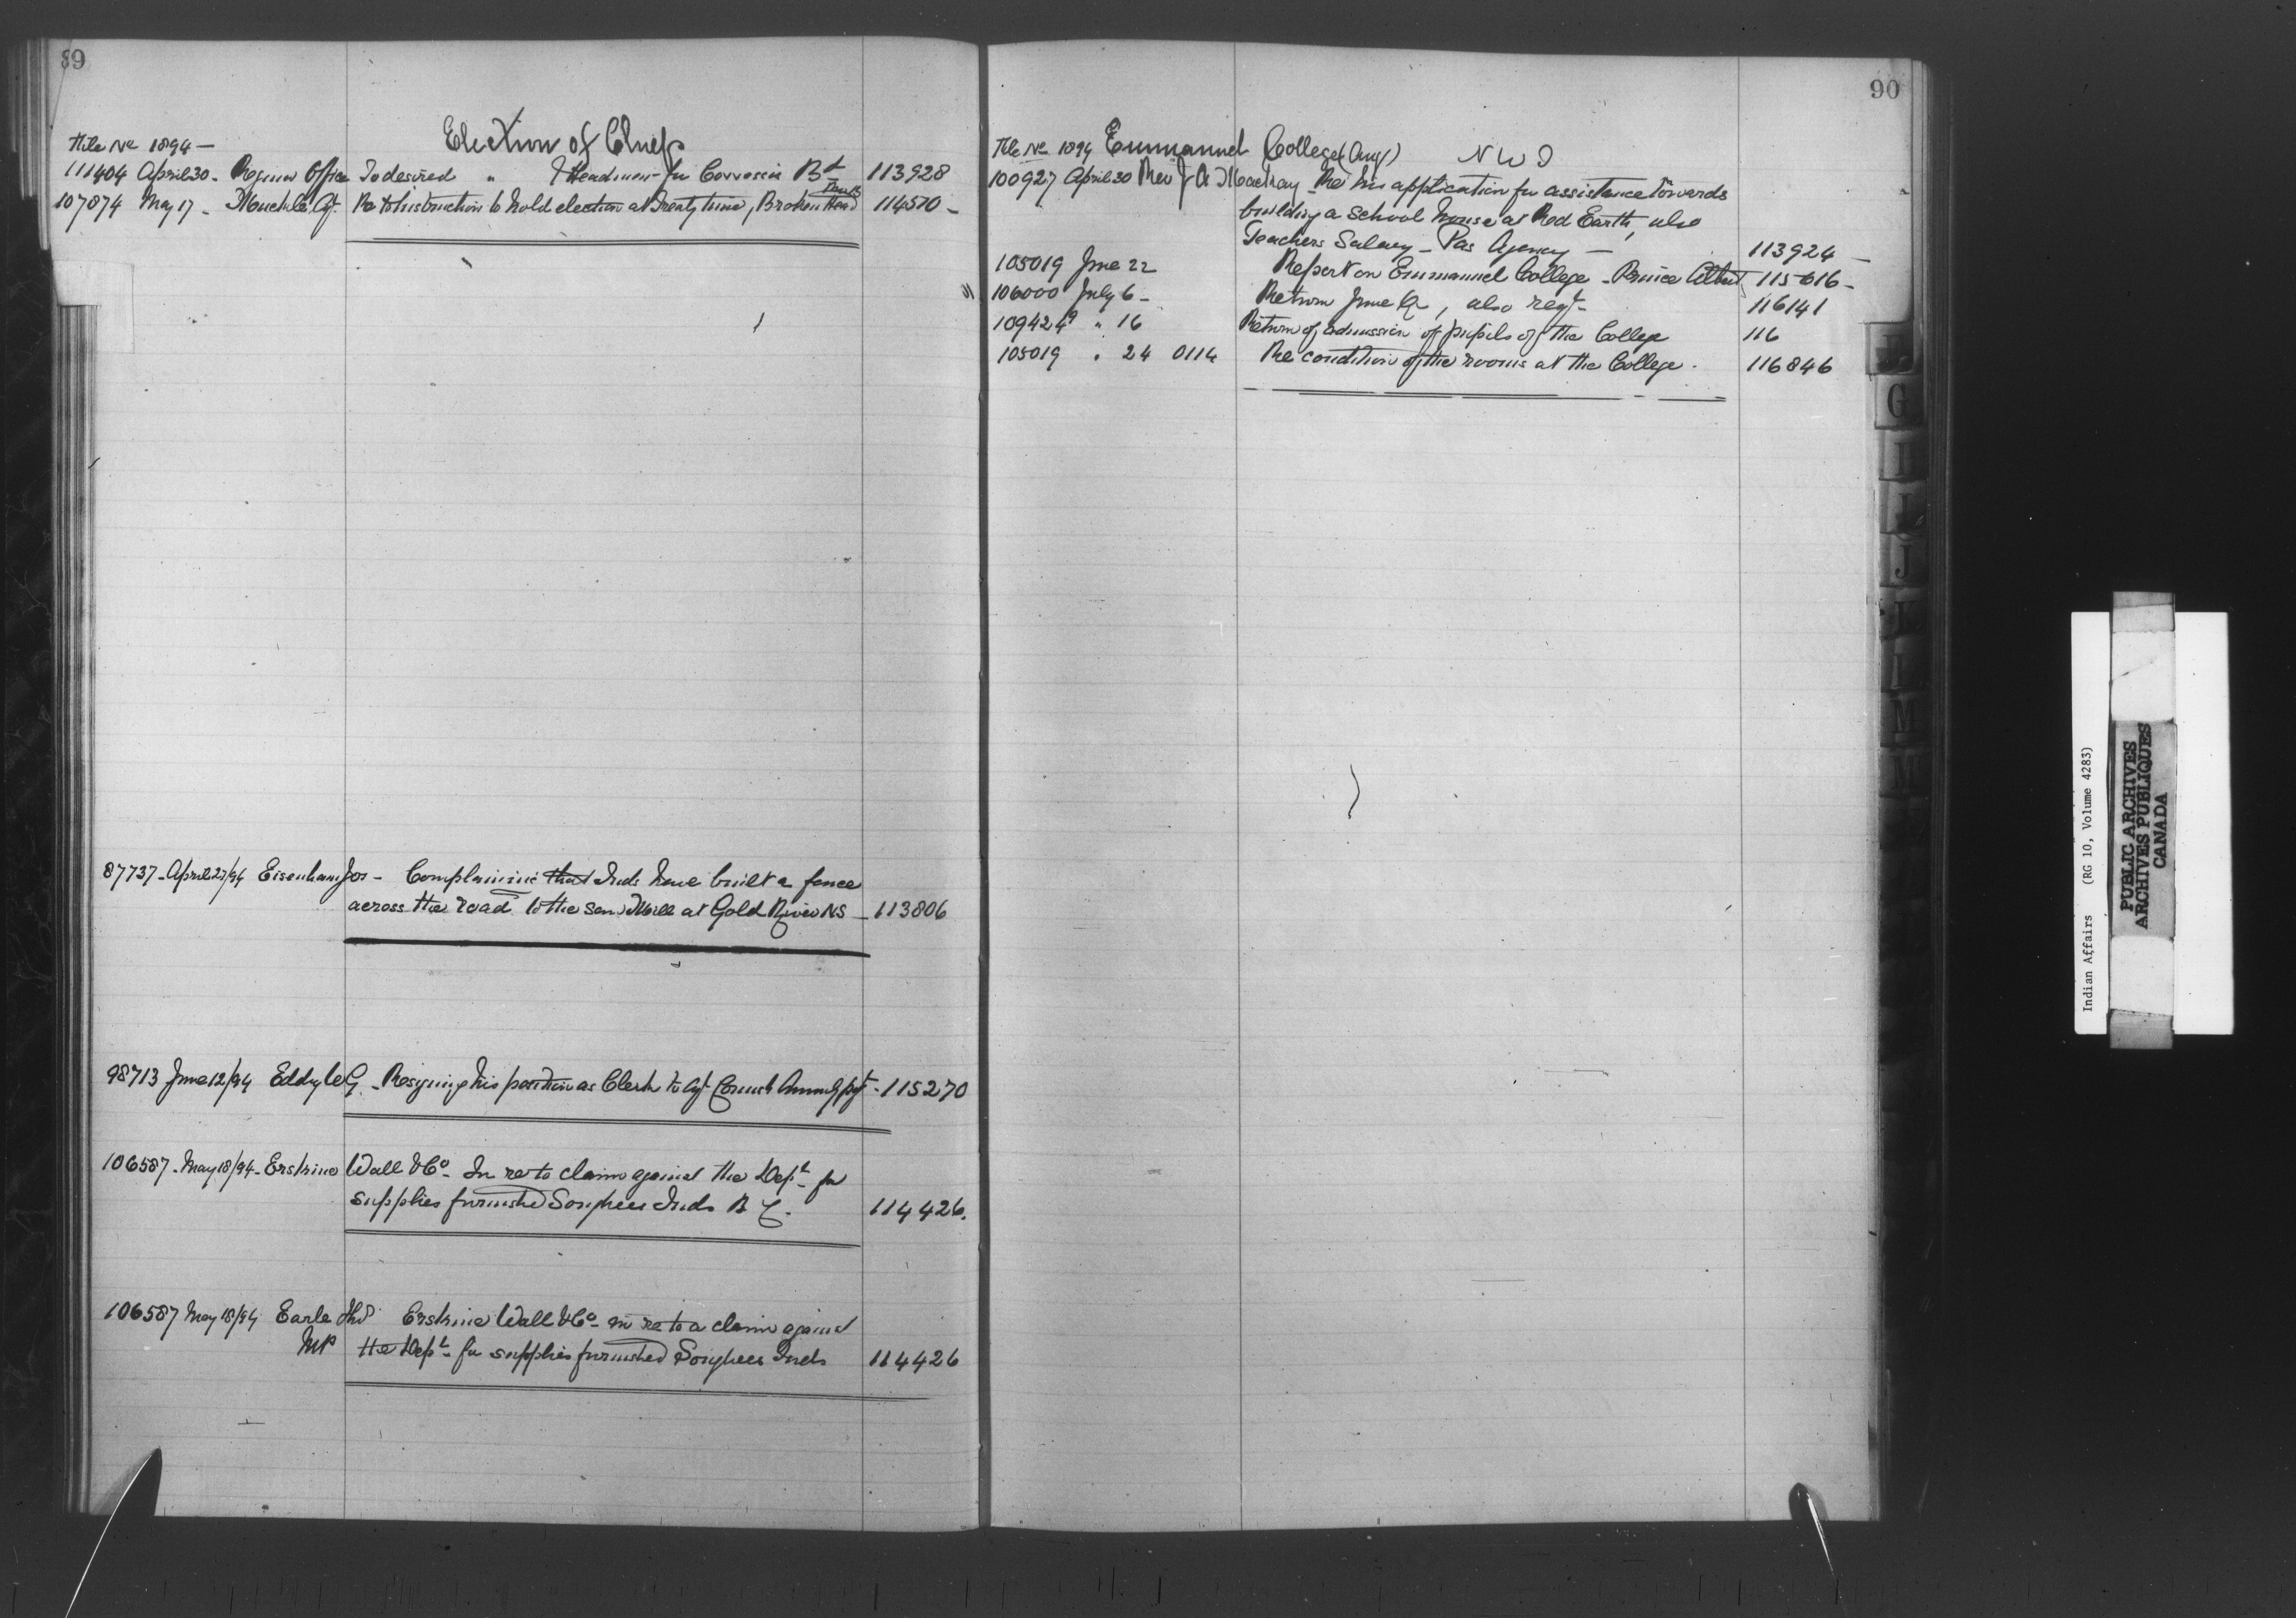 89
Election of Chiefs
File No 1894 —
111404 April 30 - Regina Office Is desired " & Headmen for Bd 113928
107874 May 17 - Muckle Agt. Re to instruction to hold election at Treaty time, Broken Head 114570 -
87737 - April 27/94 Eisenhaur Jos - Complaining that Inds have built a fence
across the road to the Saw Mill at Gold River NS - 113806
98713 June 12/94 Eddy C G. - Resigning his position as Clerk to Agt 115270
106587 - May 18/94 - Erskine Wall & Co - In re to claim against the Dept for
supplies furnished Songhees Inds B C. 114426.
106587 May 18/94 Earle Thos Erskine Wall & Co - in re to a claim against
MP the Dept - for supplies furnished Songhees Inds 114426
90
File No 1894 Emmanuel College (Ang) N W T
100927 April 30 Rev J A Mackay - Re his application for assistance towards
building a School house at Red Earth, also
Teachers Salary - Pas Agency — 113924 —
105019 June 22 Report on Emmanuel College - Prince Albert 115616 -
106000 July 6 - Return June Qr, also regt. 116141
109424 9 " 16 Return of admission of pupils of the College 116
105019 " 24 0114 Re condition of the rooms at the College. 116846
G
I
J
L
M
Indian Affairs (RG 10, Volume 4283)
PUBLIC ARCHIVES
ARCHIVES PUBLIQUES
CANADA